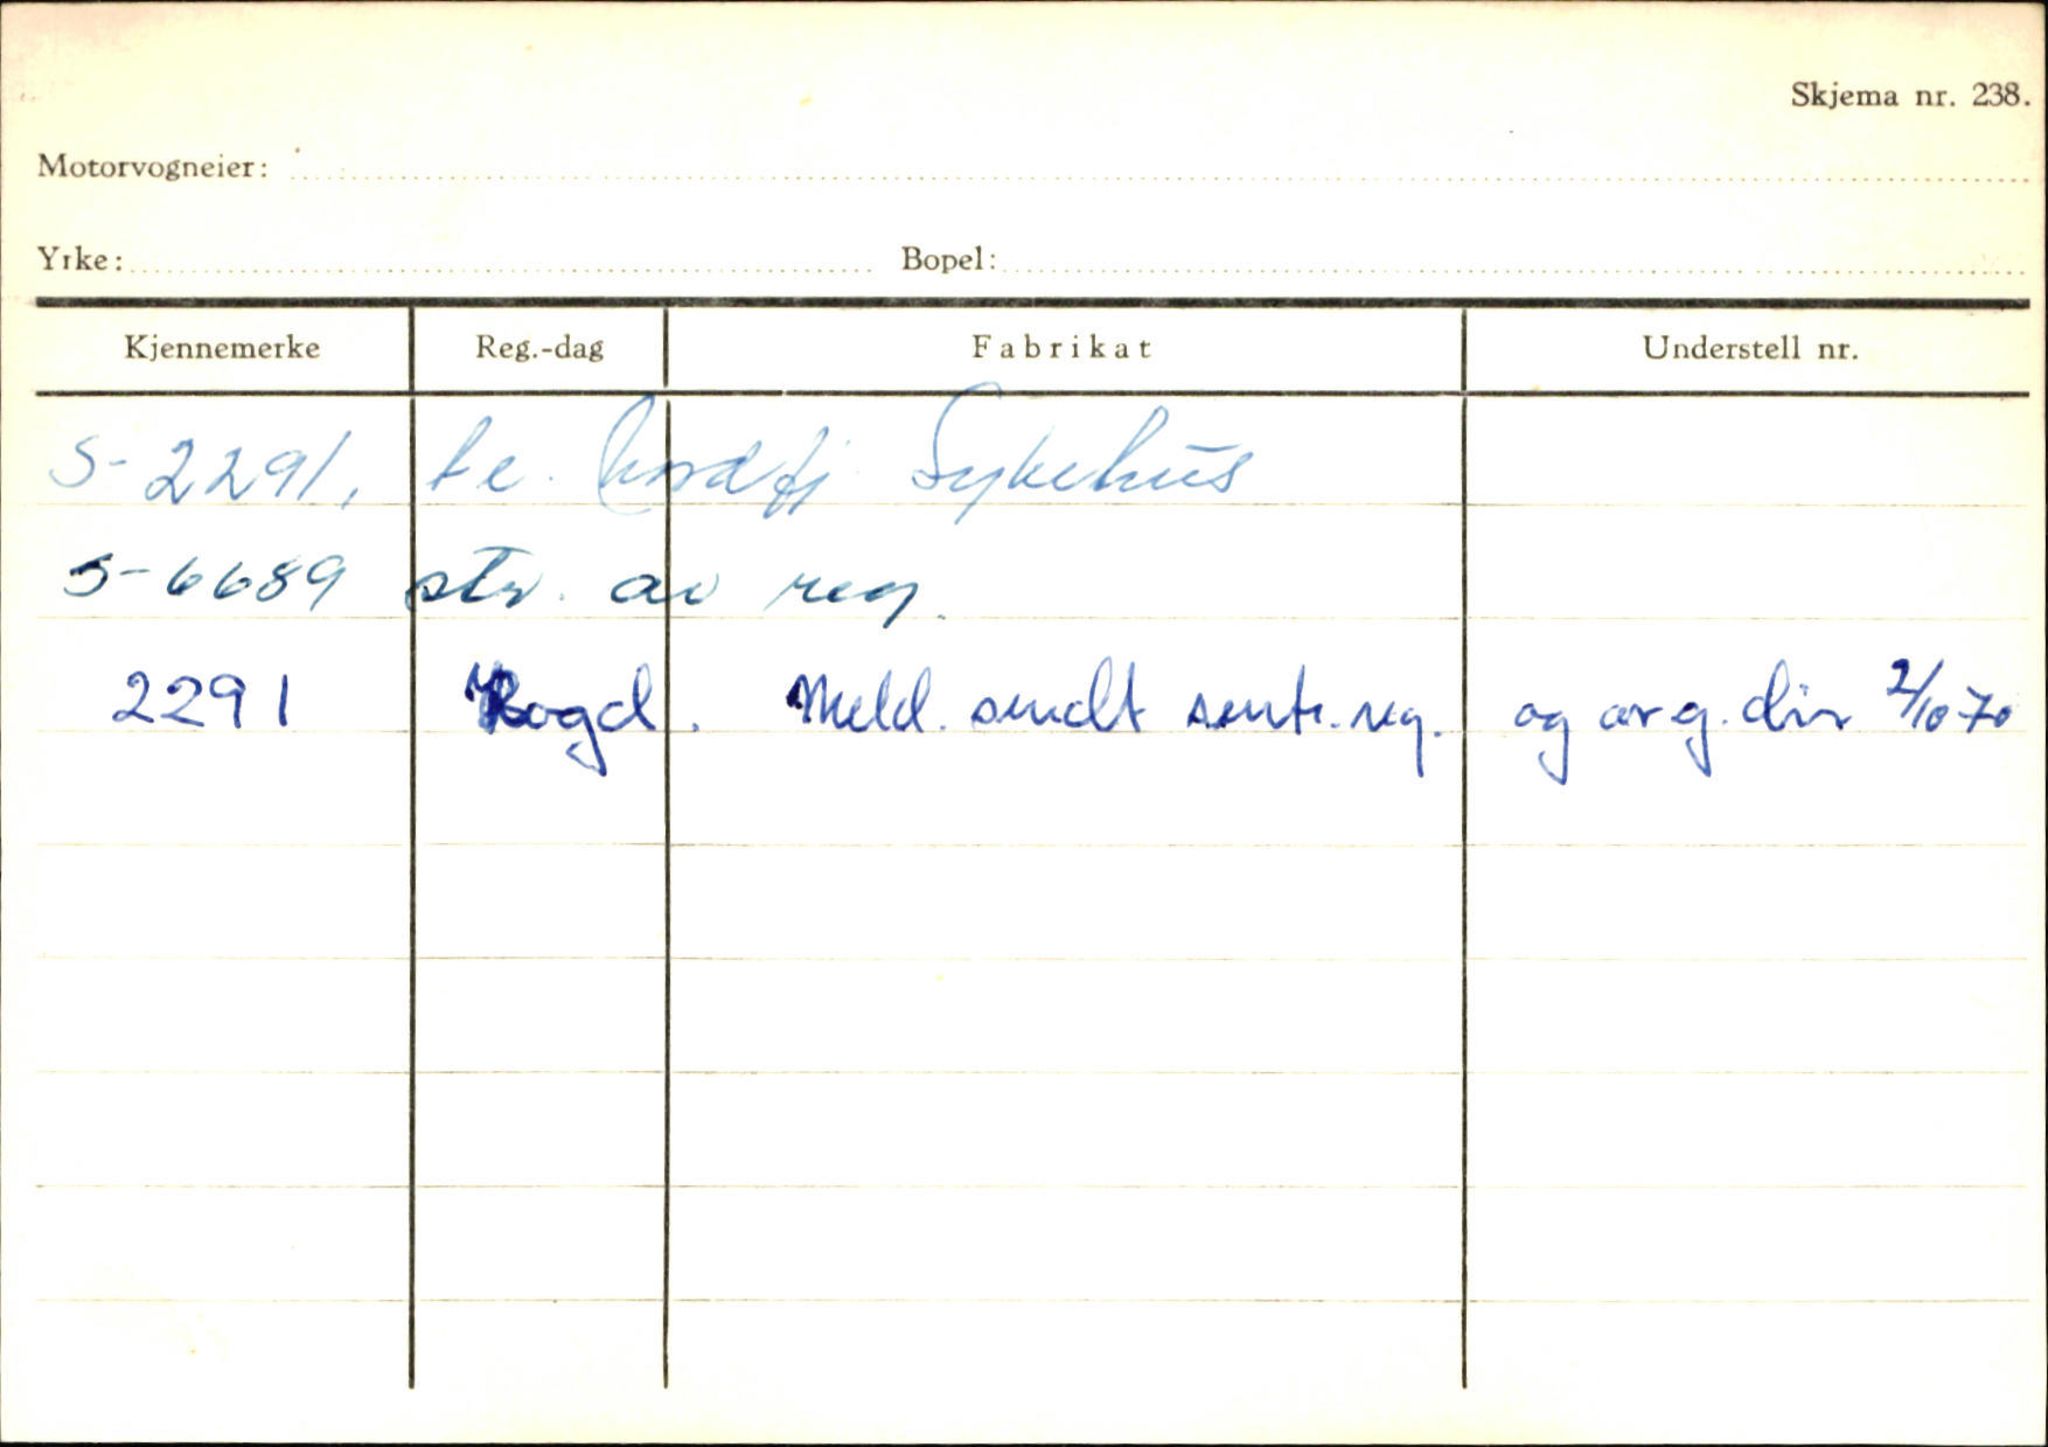 Skjema nr. 238.
Motorvogneier:
Yrke: Bopel:
Kjennemerke Reg.-dag Fabrikat Understell nr.
S-2291, Nordfj Sykehus
S-6689 str. av reg.
2291 Hogd. Meld. sendt sentr. reg. og avg. dir 2/10 70